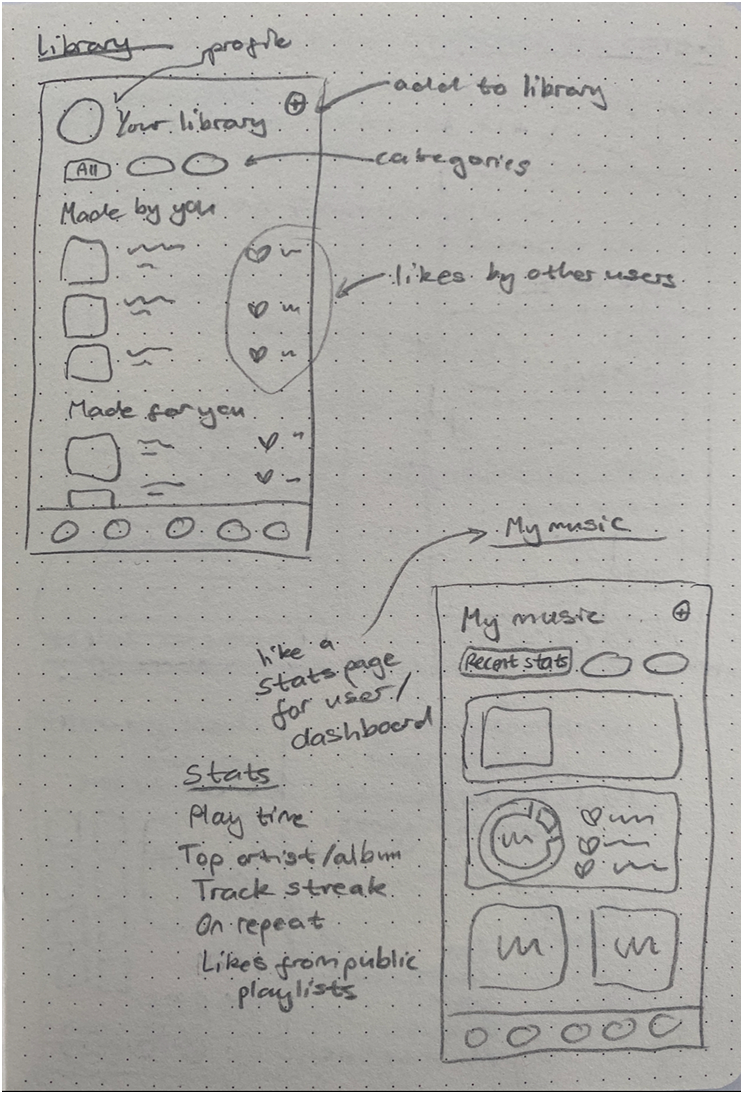 Library
profile
add to library
Your library
All
categories
Made by you
likes by other users
Made for you
My music
like a
stats page
for user/
dashboard
My music
Recent stats
Stats
Play time
Top artist/album
Track streak
On repeat
Likes from public
playlists